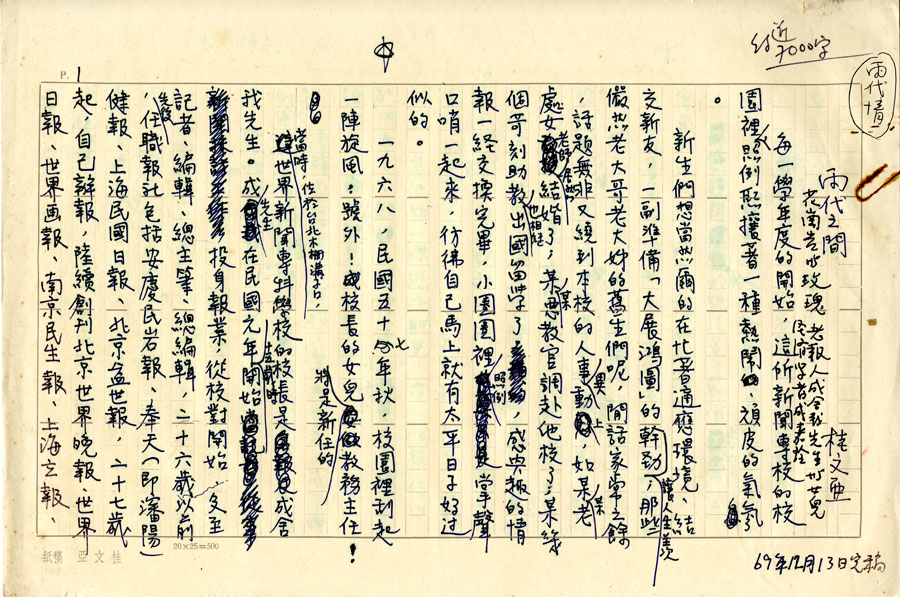 近
7000字
兩代情
P. 1
兩代之間
老報人成舍我先生

桂文亞
每一學年度的開始,這所新聞專校的校
園裡,照例熙攘著一種熱鬧、頑皮的氣氛
。
新生們想當然爾的在忙著適應環境、結
交新友,一副準備「大展鴻圖」的幹勁,那些
儼然老大哥老大姊的舊生們呢,閒話家常之餘
,話題無非又繞到本校的人事異動上,如某老
處女老師居然結婚了,某思教官調赴他校了,某綠
個哥刻助教也相繼出國留學了,感興趣的情
報一經交換完畢,小園圈裡照例掌聲
口哨一起來,彷彿自己馬上就有太平日子好過
似的。
一九六八,民國五十七年秋,校園裡刮起
一陣旋風:號外!成校長的女兒將是新任的教務主任!
當時,位於台北木柵溝子口,世界新聞專科學校的校長是成舍
我先生。成先生在民國元年開始
投身報業,從校對開始,及至
記者、編輯、總主筆、總編輯,二十六歲以前
,先後任職報社包括安慶民岩報、奉天(即瀋陽)
健報、上海民國日報、北京益世報,二十七歲
起,自己辦報,陸續創刊北京世界晚報、世界
日報、世界画報、南京民生報、上海立報、
20×25=500
桂文亞稿紙
69年12月13日完稿